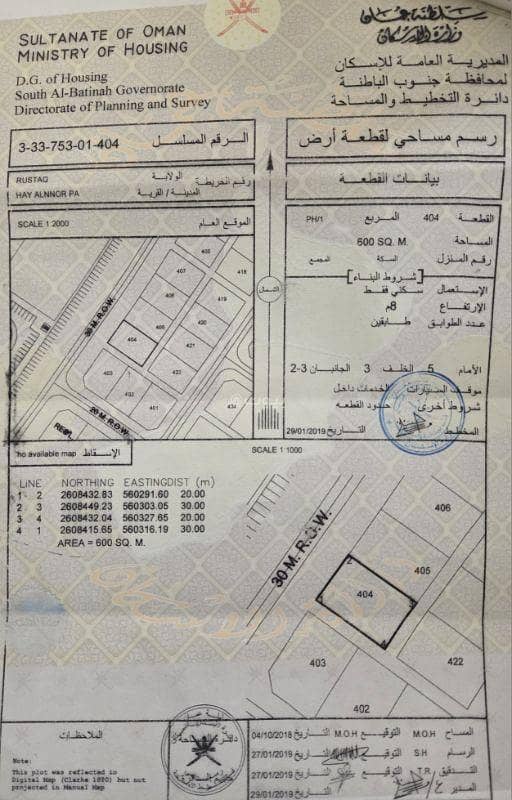 سلطنة عمان
وزارة الإسكان
SULTANATE OF OMAN
MINISTRY OF HOUSING
المديرية العامة للإسكان
لمحافظة جنوب الباطنة
دائرة التخطيط والمساحة
D.G. of Housing
South Al-Batinah Governorate
Directorate of Planning and Survey
رسم مساحي لقطعة أرض
الرقم المسلسل 3-33-753-01-404
بيانات القطعة
RUSTAQ الولاية
رقم الخريطة
HAY ALNNOR PA المدينة / القرية
SCALE 1:2000 الموقع العام
القطعة 404 المربع PH/1
المساحة 600 SQ. M.
رقم المنزل السكة المجمع
شروط البناء
الإستعمال سكني فقط
الإرتفاع 8م
عدد الطوابق طابقين
الأمام 5 الخلف 3 الجانبان 3-2
موقف السيارات الخدمات داخل
شروط أخرى حدود القطعه
المخطط التاريخ 29/01/2019
الشمال
405
418
407
408
419
406
420
404
403
422
402
401
434
30 M. R.O.W.
20 M. R.O.W.
no available map الإسقاط
SCALE 1:1000
LINE NORTHING EASTING DIST (m)
1 2 2608432.83 560291.60 20.00
2 3 2608449.23 560303.05 30.00
3 4 2608432.04 560327.65 20.00
4 1 2608415.65 560316.19 30.00
AREA = 600 SQ. M.
30 M. R.O.W.
406
405
404
403
422
402
الملاحظات
Note:
This plot was reflected in
Digital Map (Clarke 1880) but not
projected in Manual Map
المساح M.O.H التوقيع M.O.H التاريخ 04/10/2018
الرسام S.H التوقيع التاريخ 27/01/2019
التدقيق T.R التوقيع التاريخ 27/01/2019
المدير ع التاريخ 29/01/2019